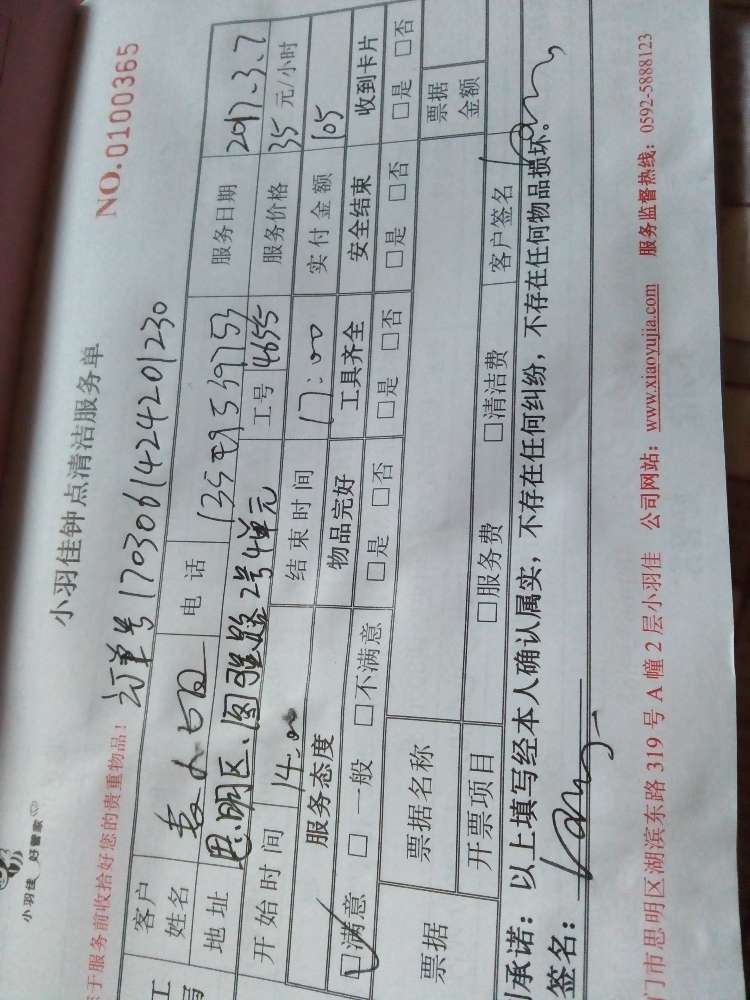 小羽佳 好管家
小羽佳钟点清洁服务单
NO.0100365
于服务前收拾好您的贵重物品！ 订单号170306142420123​0
客户姓名 电话 服务日期 2017.3.7
地址 思明区 2号4单元 工号 4655 服务价格 35 元/小时
开始时间 14:00 结束时间 17:00 实付金额 105
服务态度 物品完好 工具齐全 安全结束 收到卡片
☑满意 □一般 □不满意 □是 □否 □是 □否 □是 □否 □是 □否
票据 票据名称 票据金额
开票项目 □服务费 □清洁费 客户签名
承诺：以上填写经本人确认属实，不存在任何纠纷，不存在任何物品损坏。
签名：
门市思明区湖滨东路 319 号 A 幢 2 层小羽佳 公司网站：www.xiaoyujia.com 服务监督热线：0592-5888123